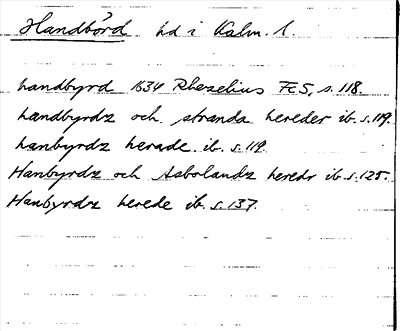 Handbörd hd i Kalm. l.
handbyrd 1634 Rhezelius Fc5, s. 118.
handbyrdz och stranda hereder ib. s. 119.
hanbyrdz herade ib. s. 119
Hanbyrdz och Asbolandz heredr ib. s. 125.
Hanbyrdz herede ib. s. 137.